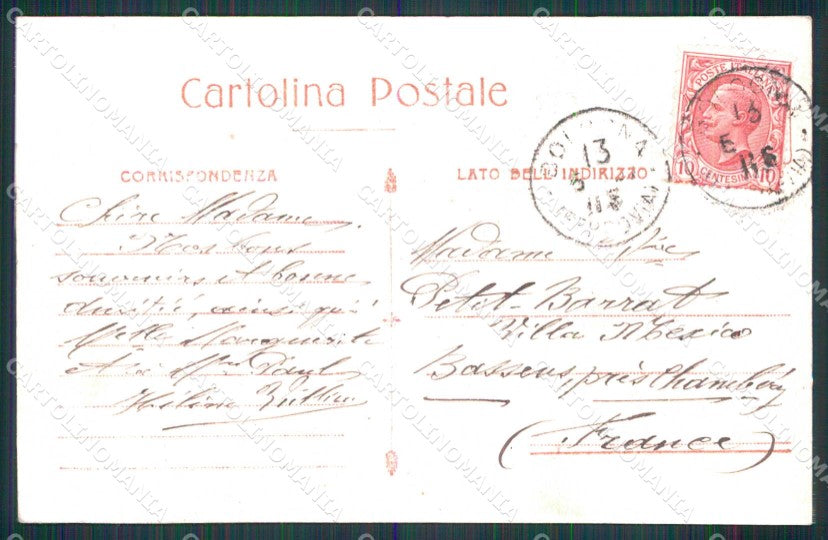 Cartolina Postale
CORRISPONDENZA
LATO DELL'INDIRIZZO
POSTE ITALIANE
10 CENTESIMI 10
BOLOGNA
13
(FERROVIA)
Chère Madame
Mes bons
souvenirs et bonne
amitié, ainsi qu'à
Melle Marguerite
et à Mme Paul
Hélène
Madame Vve
Petit-Barrat
Villa Mexico
Bassens, près Chambéry
(France)
CARTOLINOMANIA